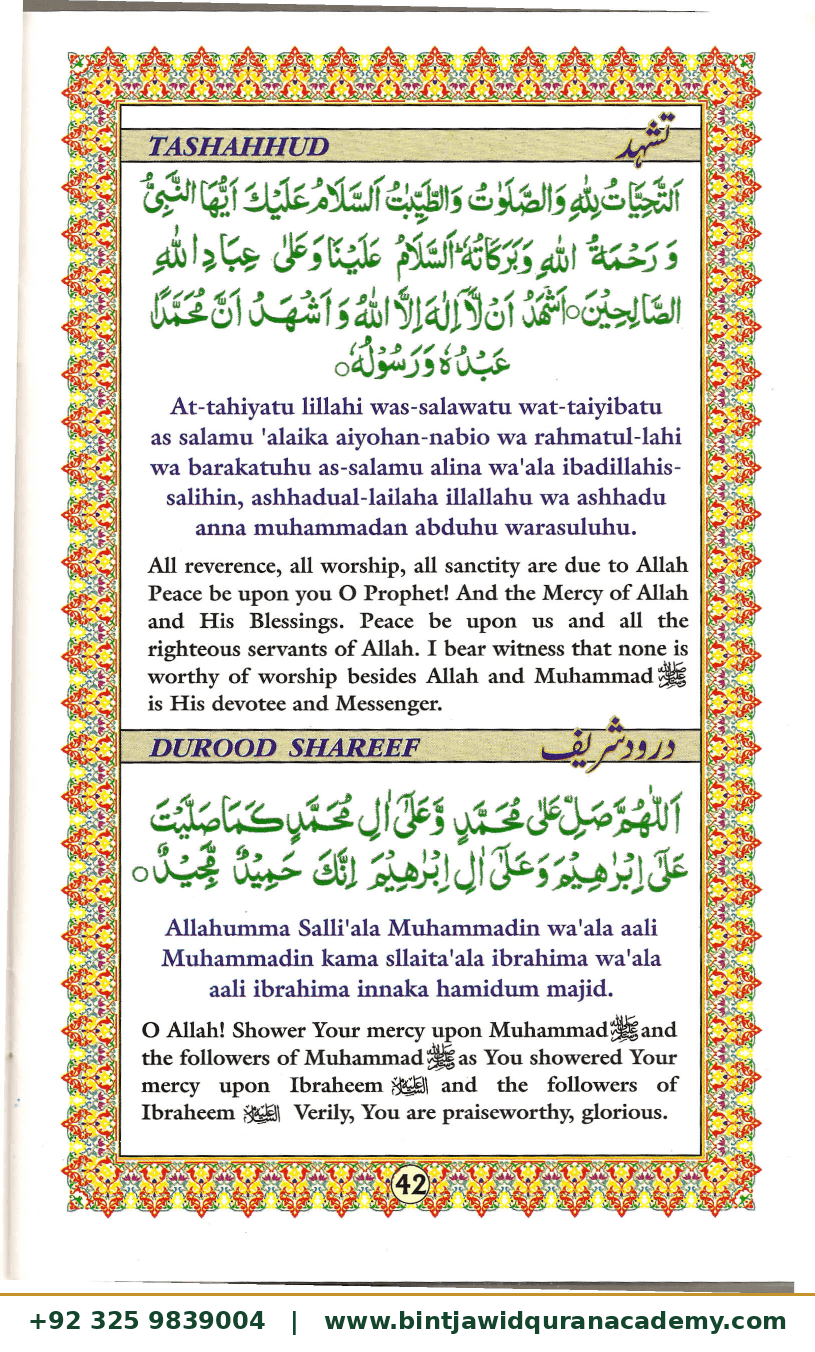 TASHAHHUD تشہد
اَلتَّحِيَّاتُ لِلّٰهِ وَالصَّلَوٰتُ وَالطَّيِّبٰتُ اَلسَّلَامُ عَلَيْكَ اَيُّهَا النَّبِيُّ
وَ رَحْمَةُ اللّٰهِ وَبَرَكَاتُهٗ ؕ اَلسَّلَامُ عَلَيْنَا وَعَلٰى عِبَادِ اللّٰهِ
الصَّالِحِيْنَ○ اَشْهَدُ اَنْ لَّآ اِلٰهَ اِلَّا اللّٰهُ وَ اَشْهَدُ اَنَّ مُحَمَّدًا
عَبْدُهٗ وَرَسُوْلُهٗ○
At-tahiyatu lillahi was-salawatu wat-taiyibatu
as salamu 'alaika aiyohan-nabio wa rahmatul-lahi
wa barakatuhu as-salamu alina wa'ala ibadillahis-
salihin, ashhadual-lailaha illallahu wa ashhadu
anna muhammadan abduhu warasuluhu.
All reverence, all worship, all sanctity are due to Allah
Peace be upon you O Prophet! And the Mercy of Allah
and His Blessings. Peace be upon us and all the
righteous servants of Allah. I bear witness that none is
worthy of worship besides Allah and Muhammad ﷺ
is His devotee and Messenger.
DUROOD SHAREEF درود شریف
اَللّٰهُمَّ صَلِّ عَلٰى مُحَمَّدٍ وَّعَلٰٓى اٰلِ مُحَمَّدٍ كَمَا صَلَّيْتَ
عَلٰٓى اِبْرٰهِيْمَ وَعَلٰٓى اٰلِ اِبْرٰهِيْمَ اِنَّكَ حَمِيْدٌ مَّجِيْدٌ○
Allahumma Salli'ala Muhammadin wa'ala aali
Muhammadin kama sllaita'ala ibrahima wa'ala
aali ibrahima innaka hamidum majid.
O Allah! Shower Your mercy upon Muhammad ﷺ and
the followers of Muhammad ﷺ as You showered Your
mercy upon Ibraheem علیہ السلام and the followers of
Ibraheem علیہ السلام Verily, You are praiseworthy, glorious.
42
+92 325 9839004 | www.bintjawidquranacademy.com